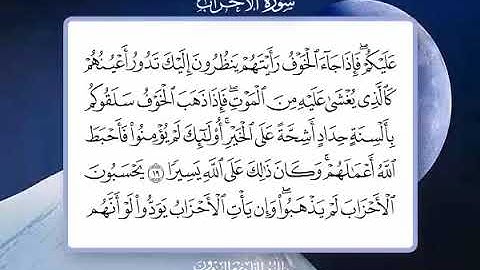 سورة الأحزاب
عَلَيْكُمْ ۖ فَإِذَا جَآءَ ٱلْخَوْفُ رَأَيْتَهُمْ يَنظُرُونَ إِلَيْكَ تَدُورُ أَعْيُنُهُمْ
كَٱلَّذِى يُغْشَىٰ عَلَيْهِ مِنَ ٱلْمَوْتِ ۖ فَإِذَا ذَهَبَ ٱلْخَوْفُ سَلَقُوكُم
بِأَلْسِنَةٍ حِدَادٍ أَشِحَّةً عَلَى ٱلْخَيْرِ ۚ أُو۟لَـٰٓئِكَ لَمْ يُؤْمِنُوا۟ فَأَحْبَطَ
ٱللَّهُ أَعْمَـٰلَهُمْ ۚ وَكَانَ ذَٰلِكَ عَلَى ٱللَّهِ يَسِيرًا ۝١٩ يَحْسَبُونَ
ٱلْأَحْزَابَ لَمْ يَذْهَبُوا۟ ۖ وَإِن يَأْتِ ٱلْأَحْزَابُ يَوَدُّوا۟ لَوْ أَنَّهُم